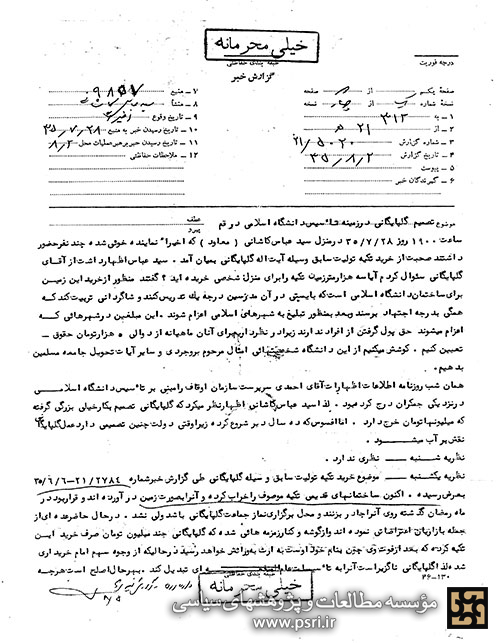 خیلی محرمانه
درجه فوریت
طبقه بندی حفاظتی
گزارش خبر
صفحه یکم از صفحه
نسخه شماره یک از چهار نسخه
۱ – به ۳۱۲
۲ – از ۲۱ ھ
۳ – شماره گزارش ۲۱/۵۰۲۰
۴ – تاریخ گزارش ۳۵/۸/۲
۵ – پیوست
۶ – گیرندگان خبر
۷ – منبع ۹۸۵۷
۸ – منشأ
۹ – تاریخ وقوع
۱۰ – تاریخ رسیدن خبر به منبع ۳۵/۷/۲۸
۱۱ – تاریخ رسیدن خبر برهبر عملیات محل ۸/۲
۱۲ – ملاحظات حفاظتی
موضوع تصمیم گلپایگانی در زمینه تأسیس دانشگاه اسلامی در قم
عطف
پیرو
ساعت ۱۹۰۰ روز ۳۵/۷/۲۸ در منزل سید عباس کاشانی (معاود) که اخیرا نماینده خوئی شده چند نفر حضور
داشتند صحبت از خرید تکیه تولیت سابق وسیله آیت اله گلپایگانی بمیان آمد. سید عباس اظهار داشت از آقای
گلپایگانی سئوال کردم آیا سه هزار متر زمین تکیه را برای منزل شخصی خریده اید؟ گفتند منظور از خرید این زمین
برای ساختمان دانشگاه اسلامی است که بایستی در آن مدرسین درجه یک تدریس کنند و شاگردانی تربیت کند که
همگی بدرجه اجتهاد برسند و بعد بمنظور تبلیغ به شهرهای اسلامی اعزام شوند. این مبلغین در شهرهائی که
اعزام میشوند حق پول گرفتن از افراد ندارند زیرا در نظر دارم برای آنان ماهیانه از دو الی ۵ هزار تومان حقوق –
تعیین کنیم. کوشش میکنیم از این دانشگاه شخصیتهائی امثال مرحوم بروجردی و سایر آیات تحویل جامعه مسلمین
بدهیم.
همان شب روزنامه اطلاعات اظهارات آقای احمدی سرپرست سازمان اوقاف را مبنی بر تأسیس دانشگاه اسلامی
در نزدیکی جمکران درج کرده بود. لذا سید عباس کاشانی اظهار نظر میکرد که گلپایگانی تصمیم بکار خیلی بزرگی گرفته
که میلیونها تومان خرج دارد. اما افسوس که ده سال دیر شروع کرده زیرا وقتی دولت چنین تصمیمی دارد عمل گلپایگانی
نقش بر آب میشود.
نظریه شنبه – نظری ندارد.
نظریه یکشنبه – موضوع خرید تکیه تولیت سابق وسیله گلپایگانی طی گزارش خبر شماره ۲۱/۲۷۸۴–۳۵/۶/۶
بعرض رسیده. اکنون ساختمانهای قدیمی تکیه موصوف را خراب کرده و آنرا بصورت زمین در آورده اند و قرار بود در
ماه رمضان گذشته روی آنرا چادر بزنند و محل برگزاری نماز جماعت گلپایگانی باشد ولی نشد. در حال حاضر عده ای از
جمله بازاریان اعتراضاتی نموده اند و از گوشه و کنار زمزمه هائی شده که گلپایگانی چند میلیون تومان صرف خرید این
تکیه کرده که بعد از فوت وی چون بنام خود اوست به ارث به ورثه اش خواهد رسید در حالیکه از وجوه سهم امام خریداری
شده لذا گلپایگانی ناگزیر است آنرا به تأسیسات عام المنفعه ای تبدیل کند. بهر حال اصلح است هر چه
طبقه بندی حفاظتی
خیلی محرمانه
۲۶–۱۳۰
مؤسسه مطالعات و پژوهشهای سیاسی
www.psri.ir